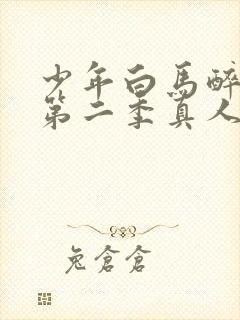 少年白馬醉
第二季真人
兔倉倉